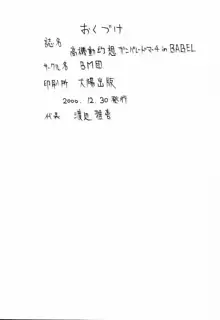 おくづけ
誌名
高機動幻想ガンパレードマーチ in BABEL
サークル名 BM団
印刷所 大陽出版
2000.12.30発行
代表 渡辺 雅吾